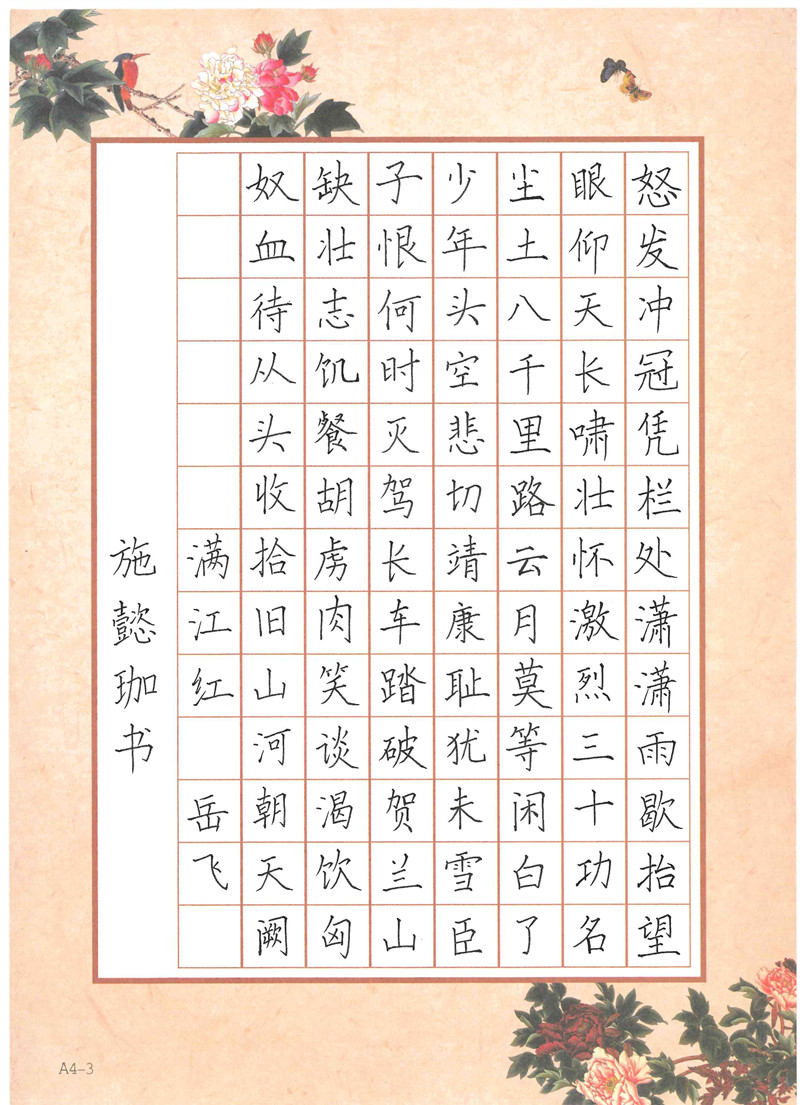 怒发冲冠凭栏处潇潇雨歇抬望
眼仰天长啸壮怀激烈三十功名
尘土八千里路云月莫等闲白了
少年头空悲切靖康耻犹未雪臣
子恨何时灭驾长车踏破贺兰山
缺壮志饥餐胡虏肉笑谈渴饮匈
奴血待从头收拾旧山河朝天阙
满江红 岳飞
施懿珈书
A4-3